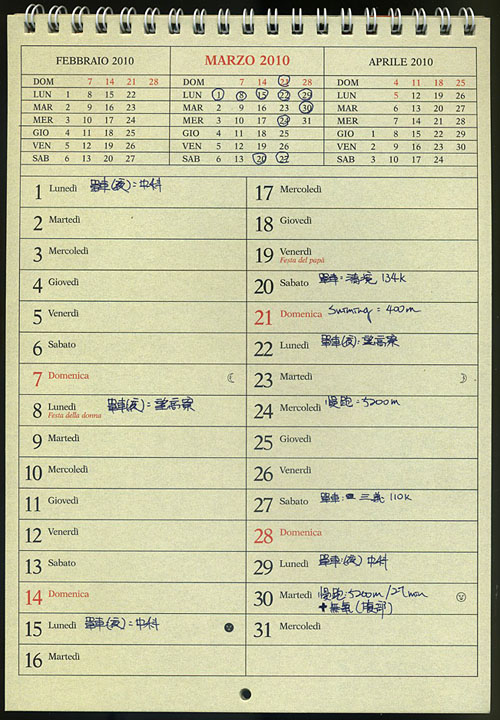 FEBBRAIO 2010
DOM 7 14 21 28
LUN 1 8 15 22
MAR 2 9 16 23
MER 3 10 17 24
GIO 4 11 18 25
VEN 5 12 19 26
SAB 6 13 20 27
MARZO 2010
DOM 7 14 21 28
LUN 1 8 15 22 29
MAR 2 9 16 23 30
MER 3 10 17 24 31
GIO 4 11 18 25
VEN 5 12 19 26
SAB 6 13 20 27
APRILE 2010
DOM 4 11 18 25
LUN 5 12 19 26
MAR 6 13 20 27
MER 7 14 21 28
GIO 1 8 15 22 29
VEN 2 9 16 23 30
SAB 3 10 17 24
1 Lunedì 單車(夜)=中科
2 Martedì
3 Mercoledì
4 Giovedì
5 Venerdì
6 Sabato
7 Domenica
8 Lunedì 單車(夜)=望高寮
Festa della donna
9 Martedì
10 Mercoledì
11 Giovedì
12 Venerdì
13 Sabato
14 Domenica
15 Lunedì 單車(夜)=中科
16 Martedì
17 Mercoledì
18 Giovedì
19 Venerdì
Festa del papà
20 Sabato 單車:清境 134k
21 Domenica Swimming = 400m
22 Lunedì 單車(夜)=望高寮
23 Martedì
24 Mercoledì 慢跑=5200m
25 Giovedì
26 Venerdì
27 Sabato 單車: 三義 110k
28 Domenica
29 Lunedì 單車:(夜) 中科
30 Martedì 慢跑:5200m/27min
+無氧(腹部)
31 Mercoledì